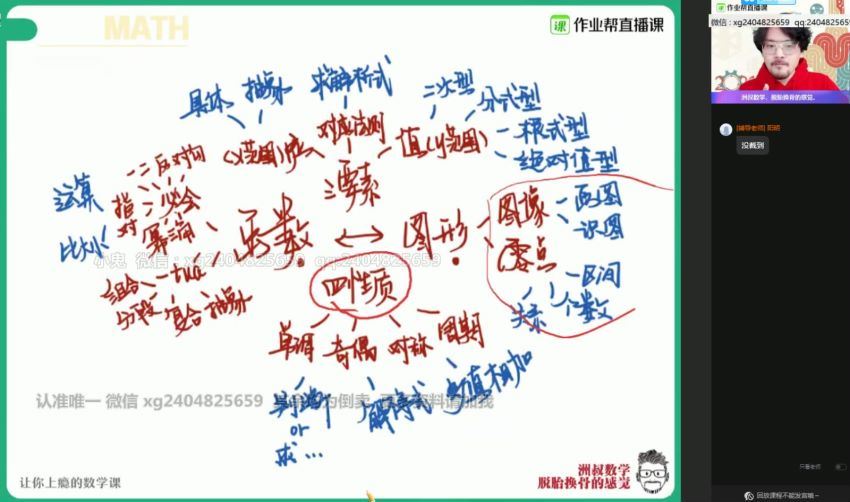 MATH
作业帮直播课
作业帮直播课
微信:xg2404825659 qq:2404825659
洲叔数学,脱胎换骨的感觉。
[辅导老师] 阳明
没截到
具体 抽象 求解析式 二次型 分式型
(x范围)
对应法则
值(y范围)
根式型
绝对值型
三要素
一二反对勾
运算
指
必会
对
幂三角
比大小
函数 ↔ 图形
图像
画图
识图
零点
区间
个数
关系
组合
分段 复合 抽象
四性质
单调 奇偶 对称 周期
小鬼 微信:xg2404825659 qq:2404825659
认准唯一 微信 xg2404825659
判断
or
求...
解得式
函值相加
让你上瘾的数学课
洲叔数学
脱胎换骨的感觉
只看老师
回放课程不能发言哦~